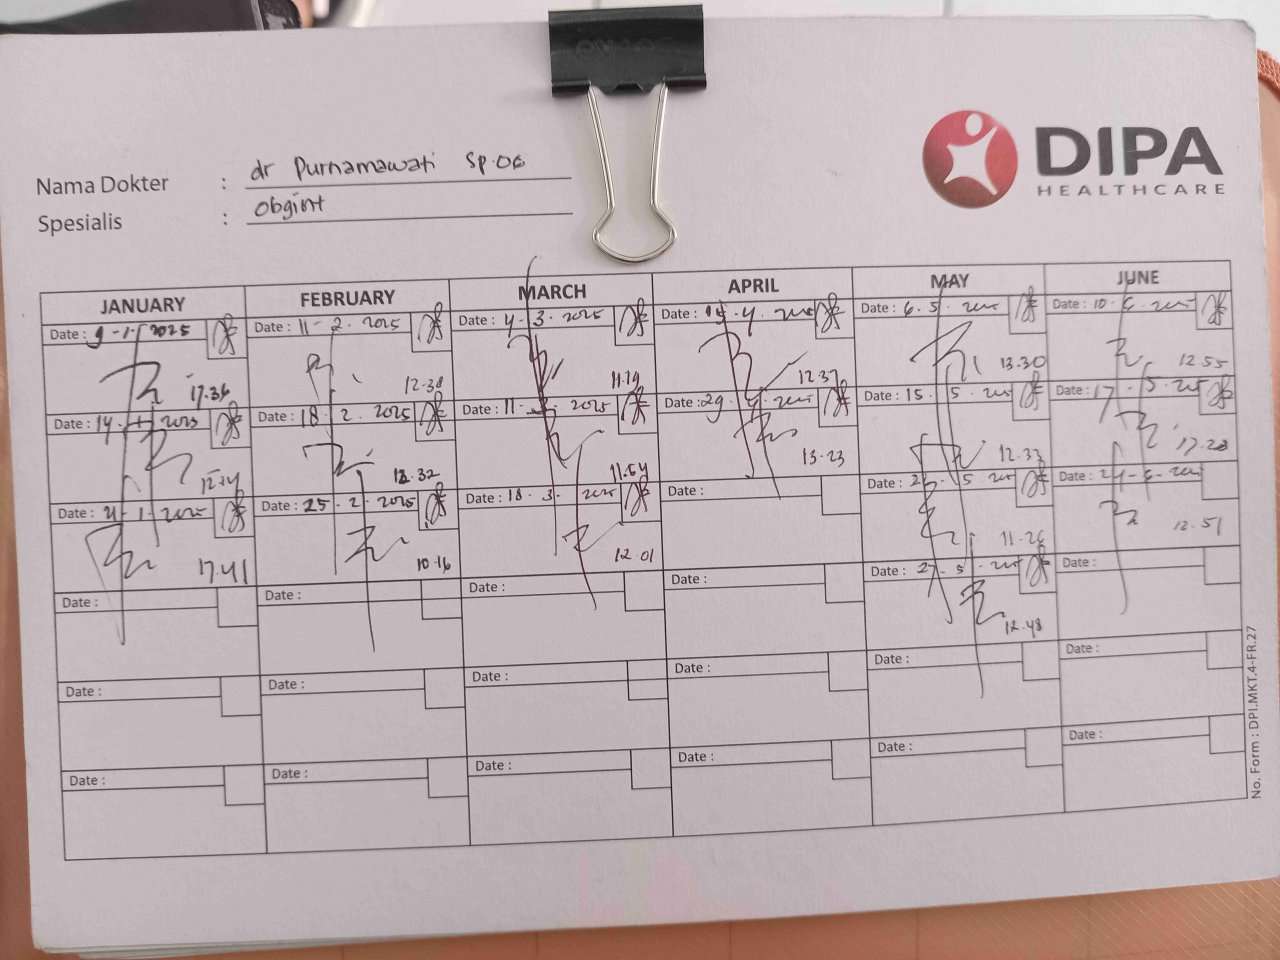 DIPA
HEALTHCARE
Nama Dokter : dr Purnamawati Sp.OG
Spesialis : Obgint
JANUARY FEBRUARY MARCH APRIL MAY JUNE
Date : 9-1-2025 Date : 11-2-2025 Date : 4-3-2025 Date : 15-4-2025 Date : 6.5.2025 Date : 10-6-2025
17.36 12.38 11.19 12.37 13.30 12.55
Date : 14-1-2025 Date : 18-2-2025 Date : 11-3-2025 Date : 29-4-2025 Date : 15.5.2025 Date : 17-
18.32 11.54 13.23 12.33 17.28
Date : 21-1-2025 Date : 25-2-2025 Date : 18-3-2025 Date : Date : Date : 24-6-2025
17.41 10.16 12.01 11.26 12.51
Date : Date : Date : Date : Date : 27-5-2025 Date :
12.48
Date : Date : Date : Date : Date : Date :
Date : Date : Date : Date : Date : Date :
No. Form : DPI.MKT.4-FR.27